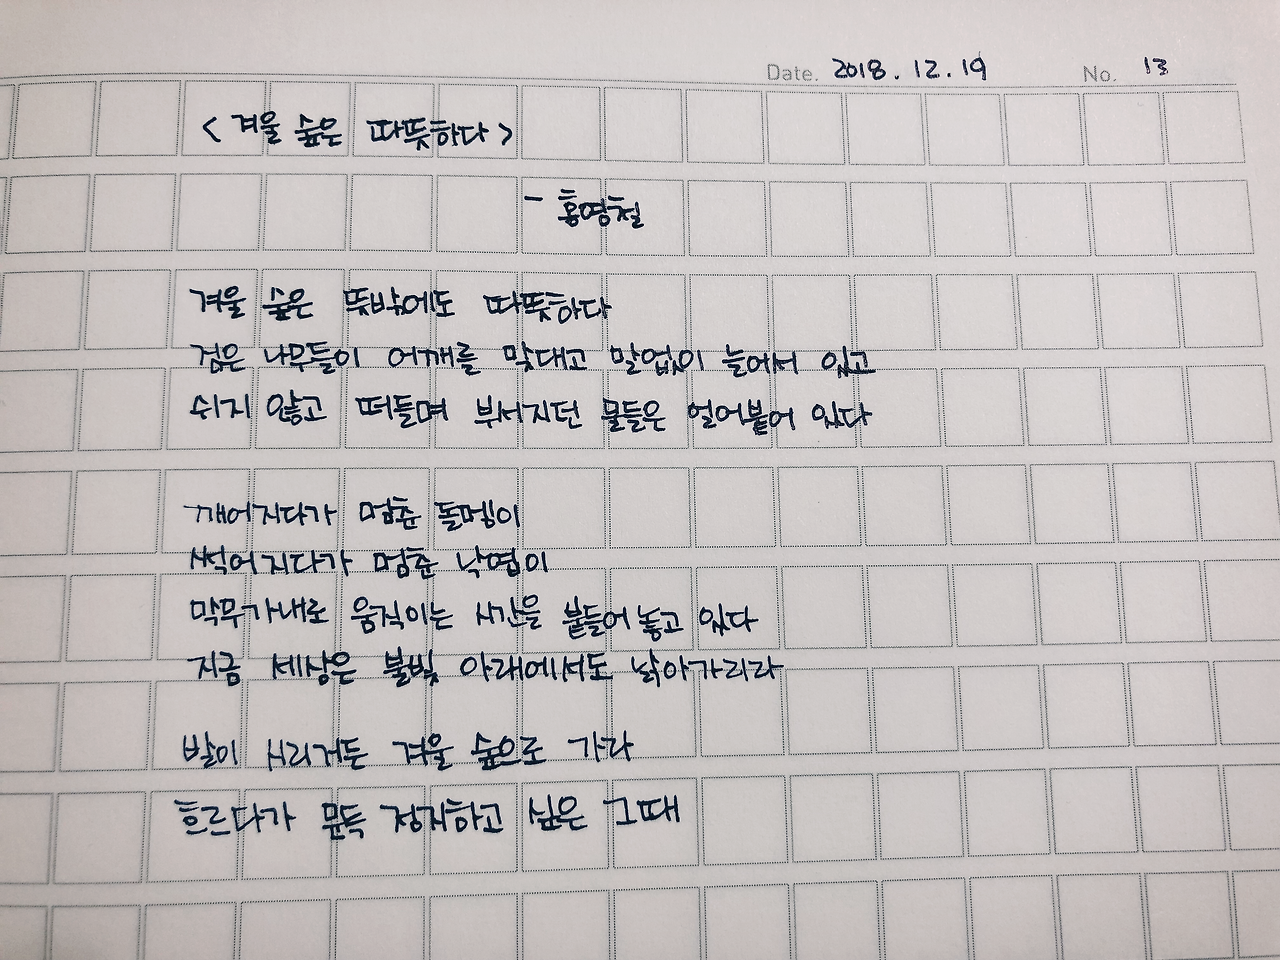 Date. 2018. 12. 19 No. 13
< 겨울 숲은 따뜻하다 >
- 홍영철
겨울 숲은 뜻밖에도 따뜻하다
검은 나무들이 어깨를 맞대고 말없이 늘어서 있고
쉬지 않고 떠들며 부서지던 물들은 얼어붙어 있다
깨어지다가 멈춘 돌멩이
썩어지다가 멈춘 낙엽이
막무가내로 움직이는 시간을 붙들어 놓고 있다
지금 세상은 불빛 아래에서도 낡아가리라
발이 시리거든 겨울 숲으로 가라
흐르다가 문득 정지하고 싶은 그때